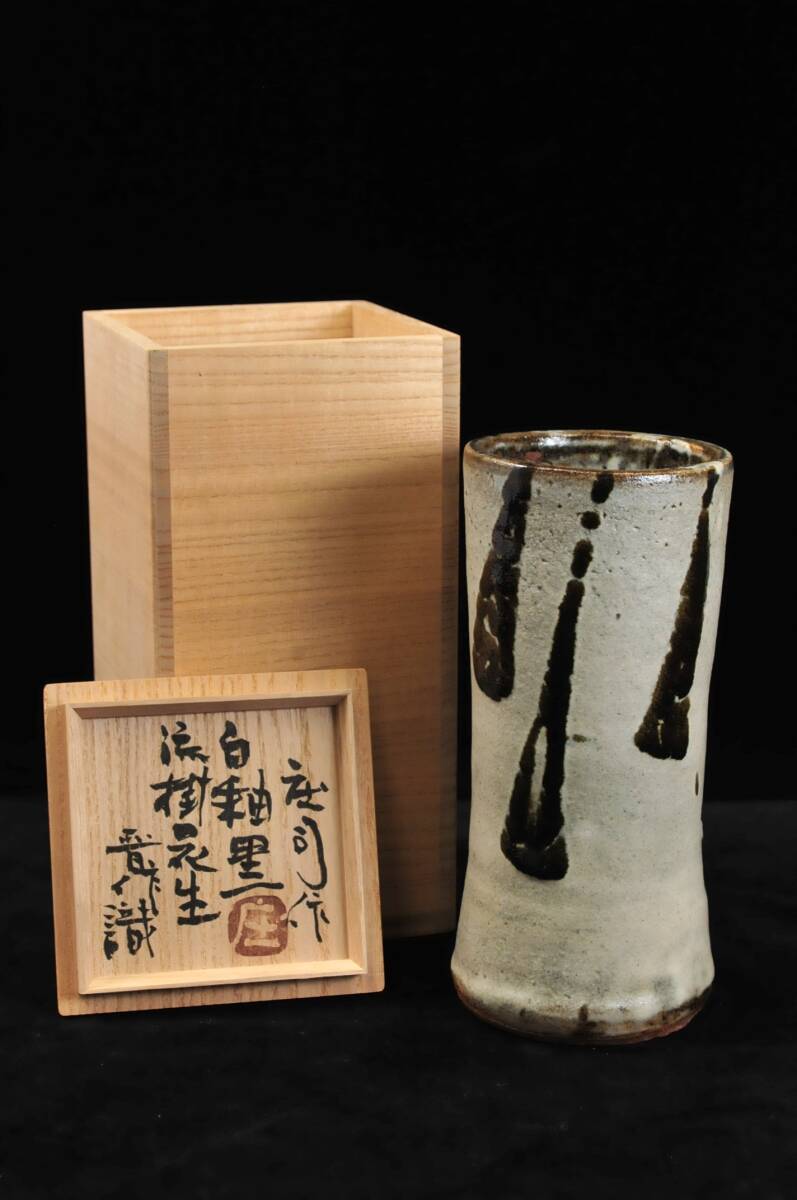 庄司作
白釉黒
流掛花生
晋作識
庄